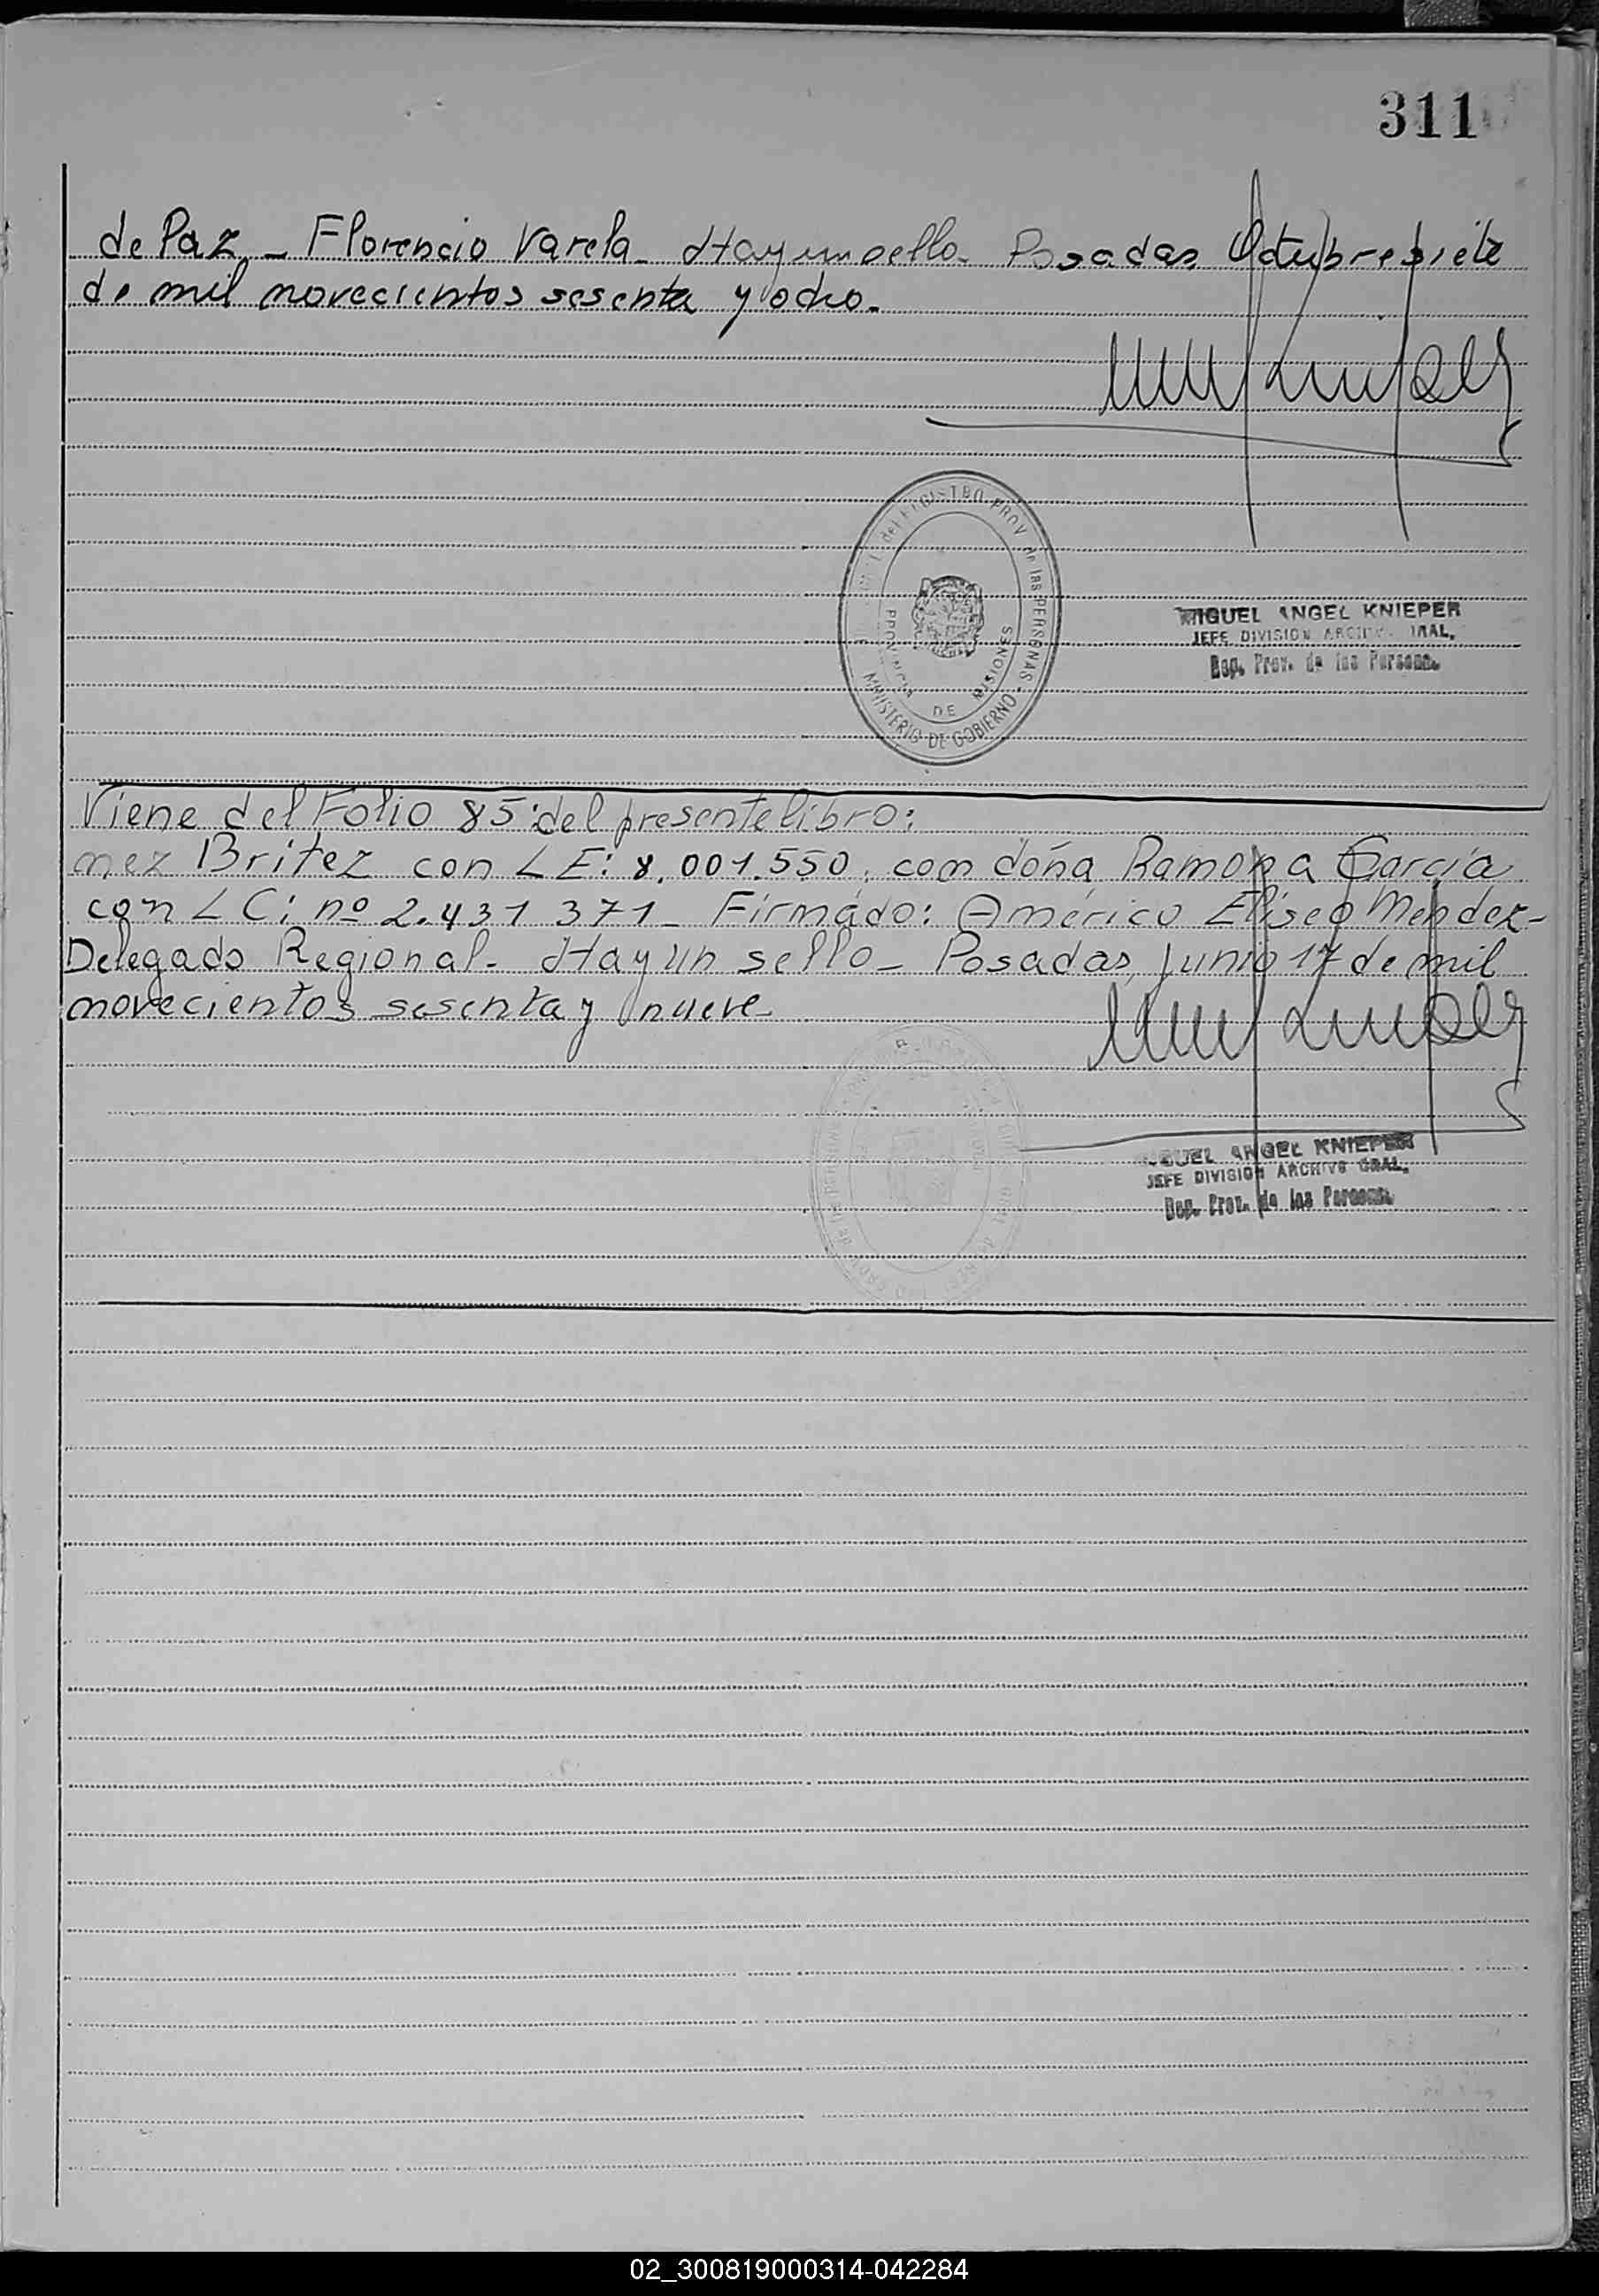 311
de Paz - Florencio Varela - Hay un sello - Posadas Octubre siete
de mil novecientos sesenta y ocho.
del REGISTRO PROV. de las PERSONAS
MINISTERIO DE GOBIERNO
PROVINCIA DE MISIONES
MIGUEL ANGEL KNIEPER
JEFE DIVISION
Prov. de las
Viene del Folio 85 del presente libro:
mez Britez con LE: 8.001.550, con doña Ramona García
con LC: nº 2.431 371 - Firmado: Américo Eliseo Mendez -
Delegado Regional - Hay un sello - Posadas, Junio 17 de mil
novecientos sesenta y nueve -
ANGEL KNIEPER
JEFE DIVISION ARCHIVO GRAL.
Prov. de las
02_300819000314-042284